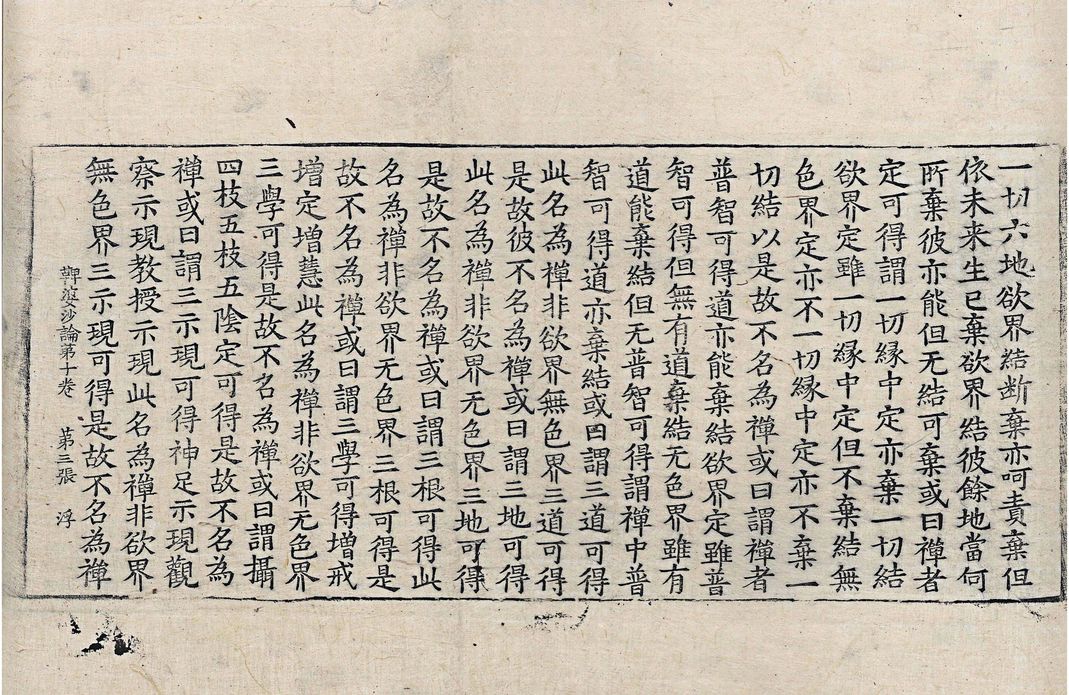 一切六地欲界結断棄亦呵責棄但
依未来生已棄欲界結彼餘地當何
所棄彼亦能但无結可棄或曰禪者
定可得謂一切縁中定亦棄一切結
欲界定雖一切縁中定但不棄結無
色界定亦不一切縁中定亦不棄一
切結以是故不名為禪或曰謂禪者
普智可得道亦能棄結欲界定雖普
智可得但無有道棄結无色界雖有
道能棄結但无普智可得謂禪中普
智可得道亦棄結或曰謂三道可得
此名為禪非欲界無色界三道可得
是故彼不名為禪或曰謂三地可得
此名為禪非欲界无色界三地可得
是故不名為禪或曰謂三根可得此
名為禪非欲界无色界三根可得是
故不名為禪或曰謂三學可得増戒
増定増慧此名為禪非欲界无色界
三學可得是故不名為禪或曰謂攝
四枝五枝五陰定可得是故不名為
禪或曰謂三示現可得神足示現觀
察示現教授示現此名為禪非欲界
無色界三示現可得是故不名為禪
鞞婆沙論第十卷 第三張 浮